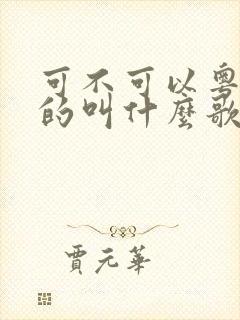 可不可以粤
的叫什麼歌
賈元華